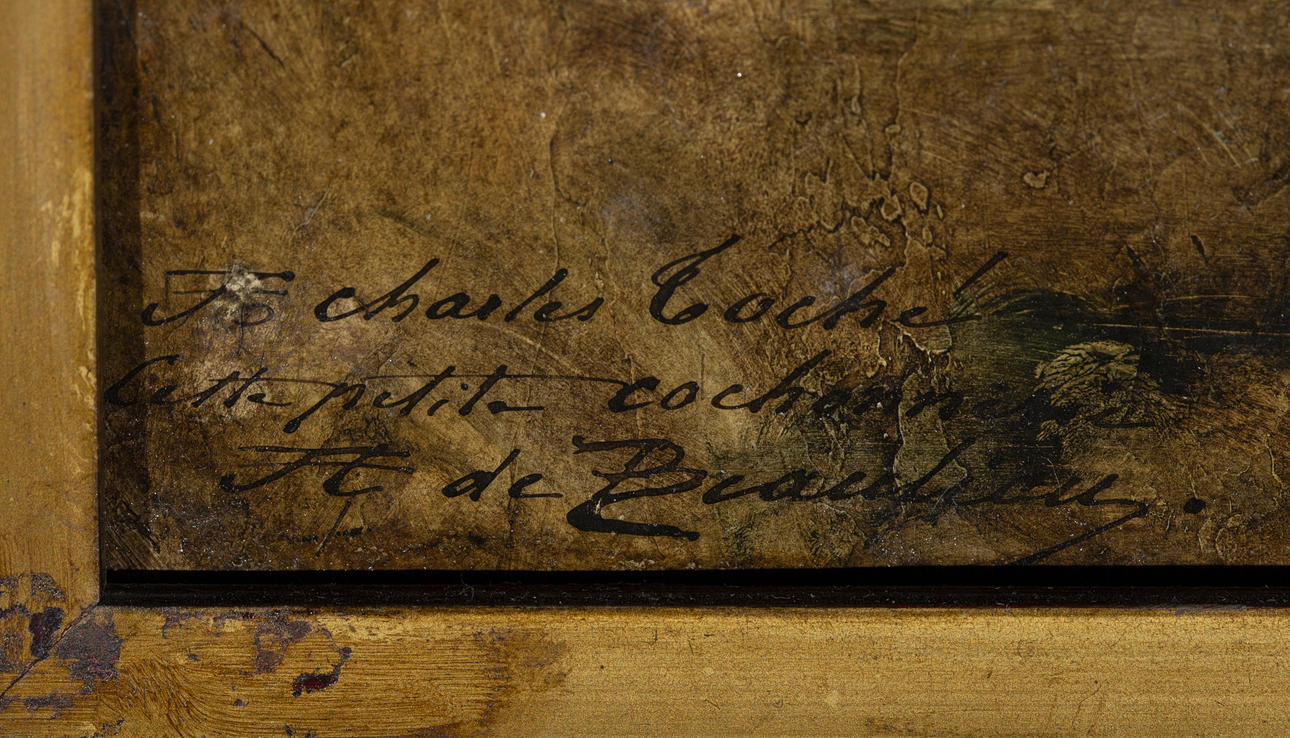 A charles Toché
Cette petite cochonnerie
A de Beaulieu.